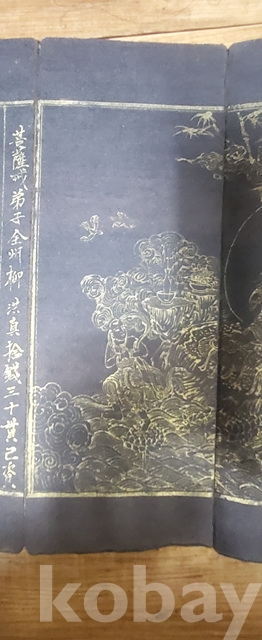 菩薩戒弟子全州柳洪真捨錢三十貫己
kobay